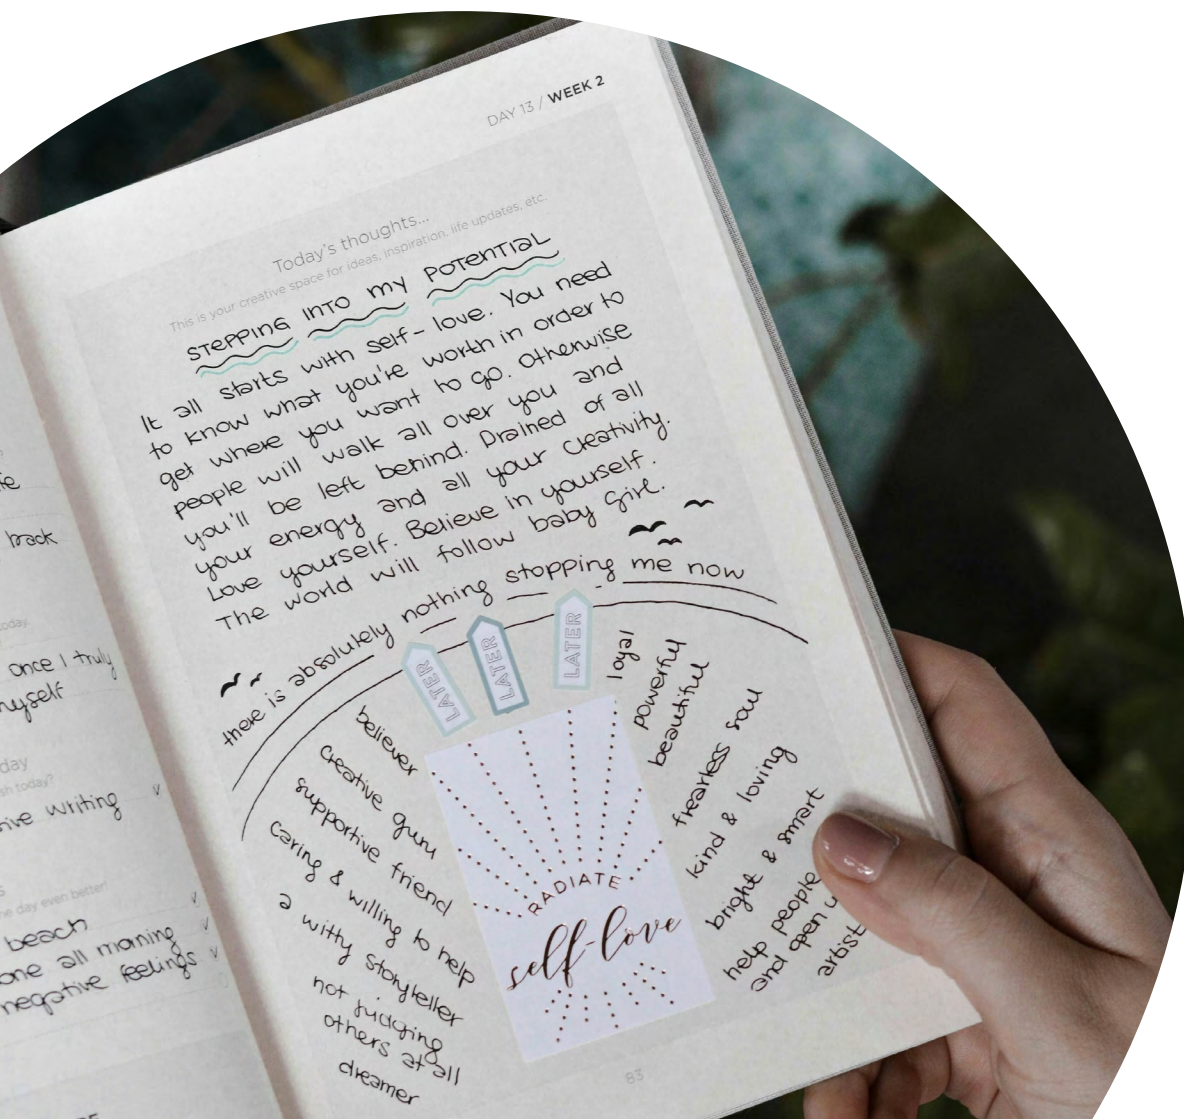 DAY 13 / WEEK 2
Today's thoughts...
This is your creative space for ideas, inspiration, life updates, etc.
STEPPING INTO MY POTENTIAL
It all starts with self-love. You need
to know what you're worth in order to
get where you want to go. Otherwise
people will walk all over you and
you'll be left behind. Drained of all
your energy and all your creativity.
Love yourself. Believe in yourself.
The world will follow baby girl.
there is absolutely nothing stopping me now
LATER
LATER
LATER
believer
creative guru
supportive friend
caring & willing to help
a witty storyteller
not judging
others at all
dreamer
RADIATE
self-love
loyal
powerful
beautiful
fearless soul
kind & loving
bright & smart
help people
and open
artist
83
back
today.
once I truly
myself
day
today?
writing
the day even better!
beach
all morning
negative feelings